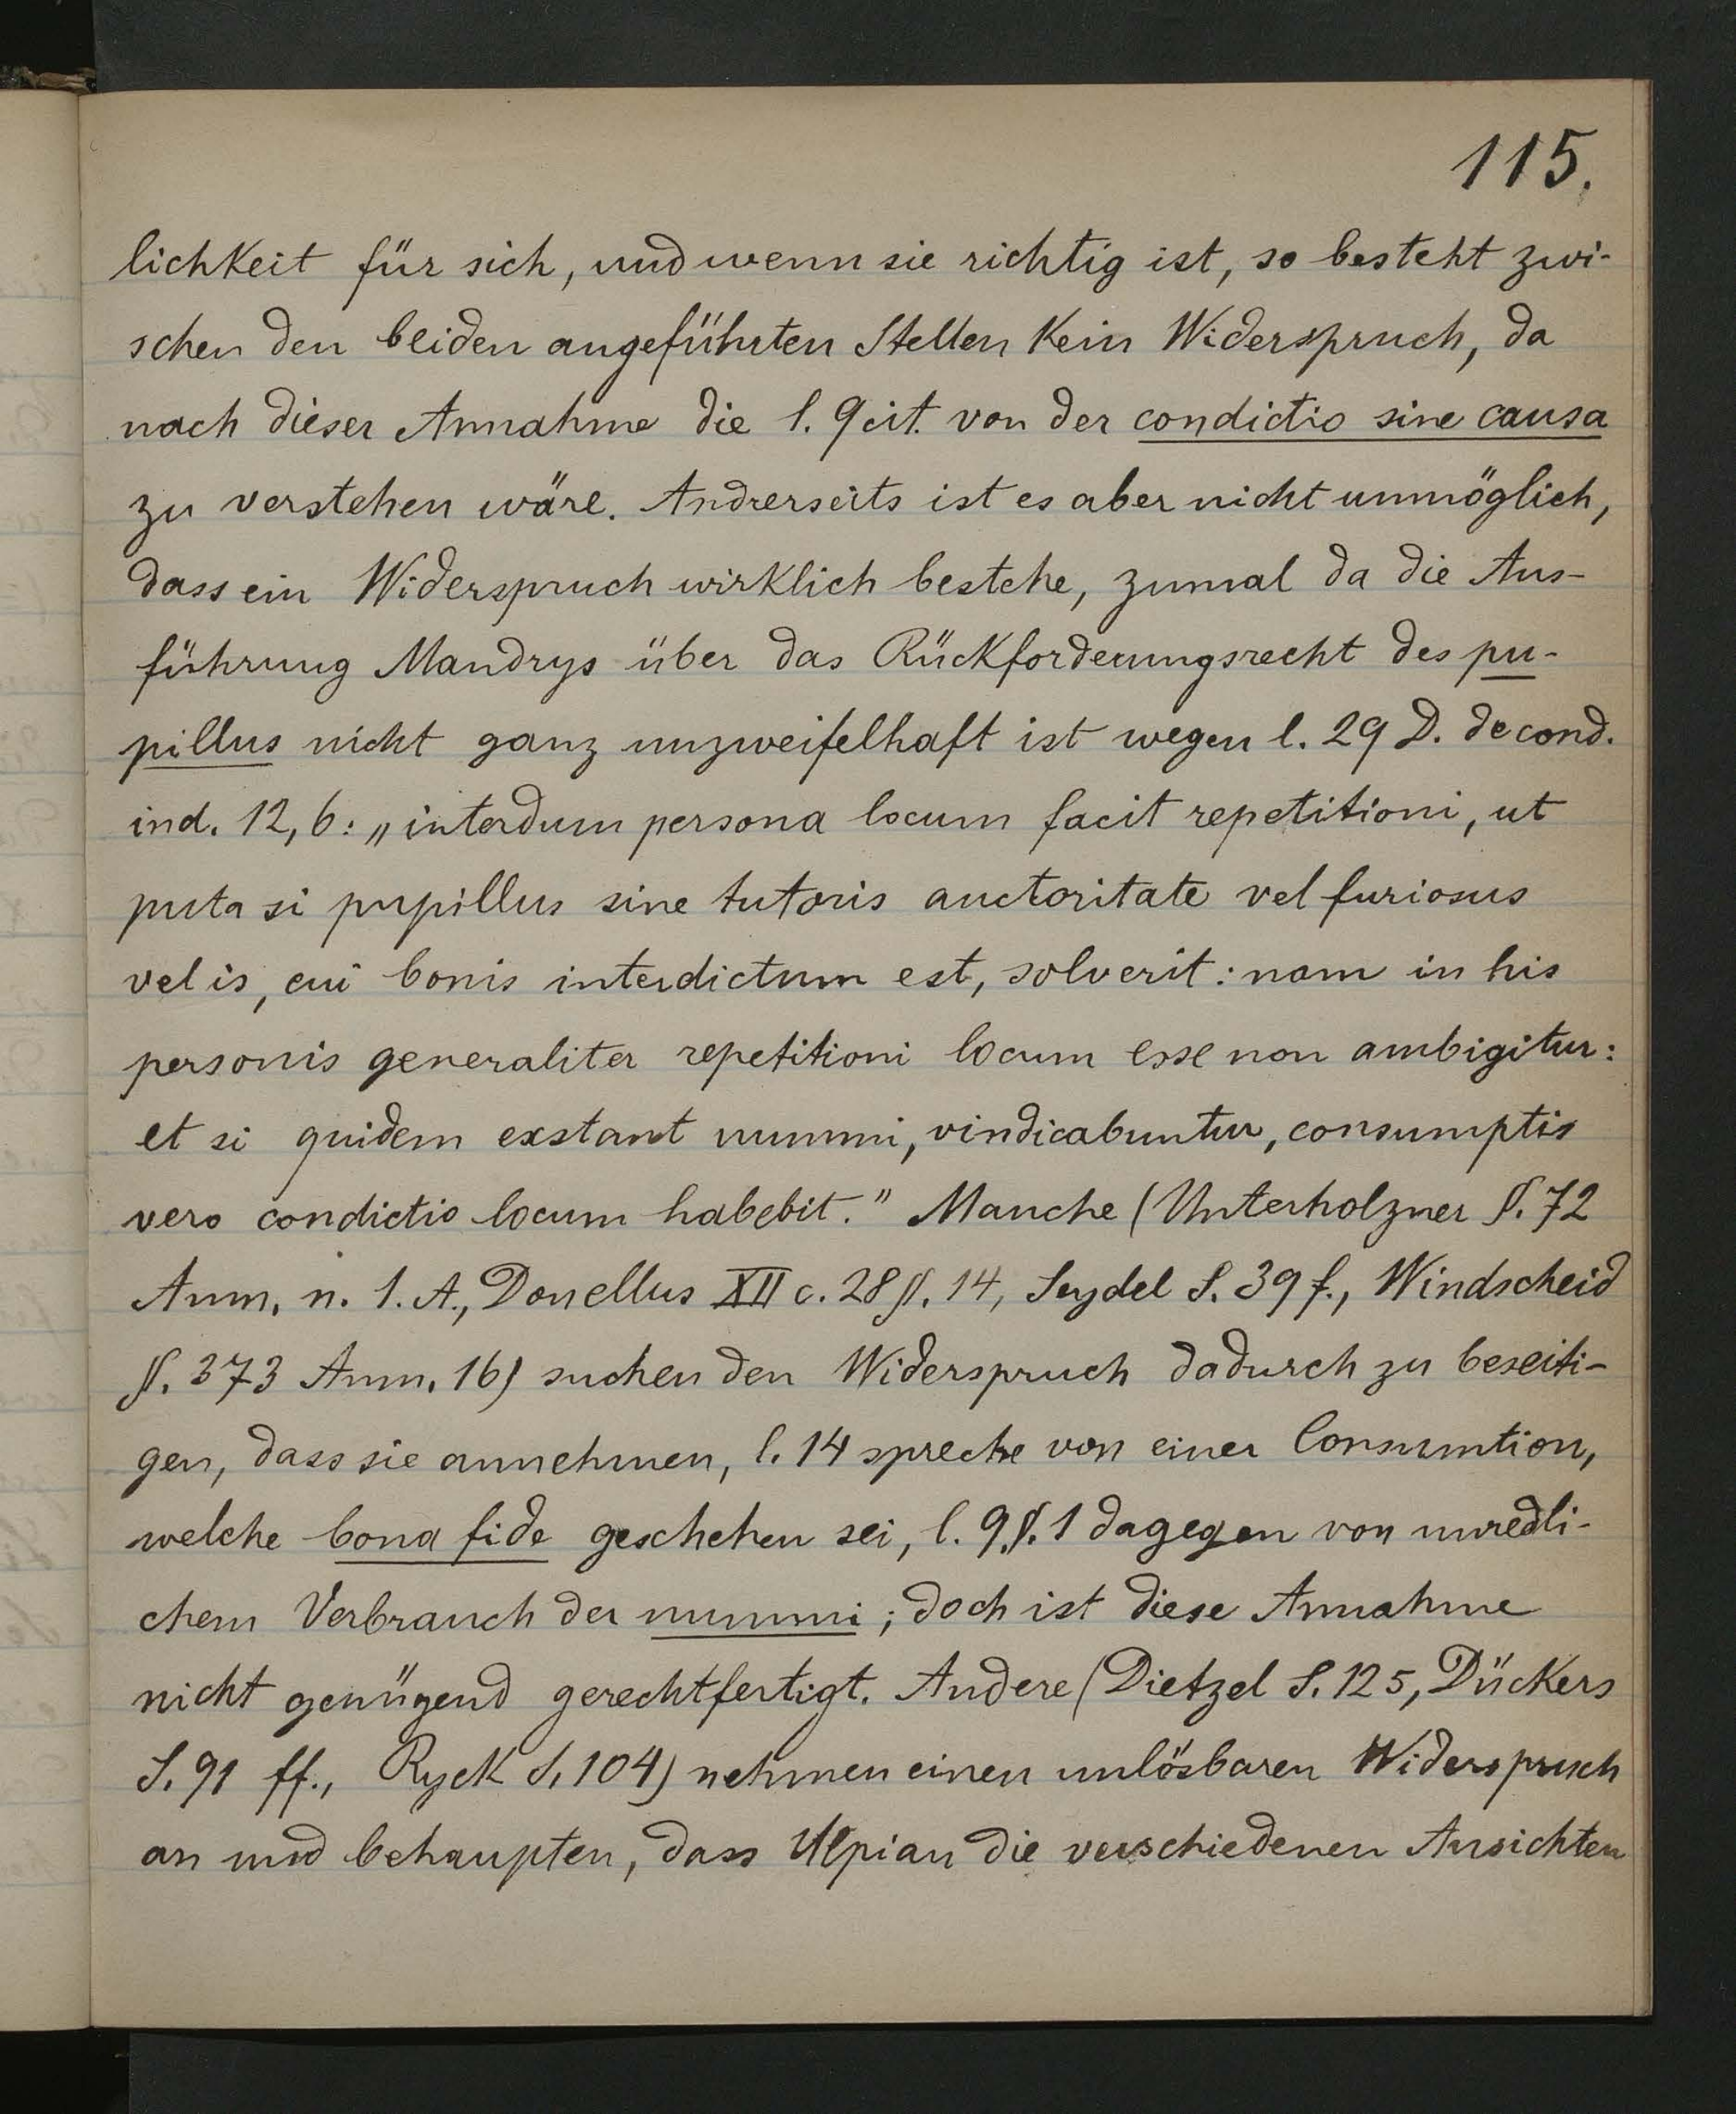 115.
lichkeit für sich, und wenn sie richtig ist, so besteht zwi-
schen den beiden angeführten Stellen kein Widerspruch, da
nach dieser Annahme die l. 9 cit. von der condictio sine causa
zu verstehen wäre. Andrerseits ist es aber nicht unmöglich,
dass ein Widerspruch wirklich bestehe, zumal da die Aus-
führung Mandrys über das Rückforderungsrecht des pu-
pillus nicht ganz unzweifelhaft ist wegen l. 29 D. de cond.
ind. 12, 6: „interdum persona locum facit repetitioni, ut
puta si pupillus sine tutoris auctoritate vel furiosus
vel is, cui bonis interdictum est, solverit: nam in his
personis generaliter repetitioni locum esse non ambigitur:
et si quidem exstant nummi, vindicabuntur, consumptis
vero condictio locum habebit." Manche (Unterholzner §. 72
Anm. n. 1. A., Donellus XII c. 28 §. 14, Seydel S. 39 f., Windscheid
§. 373 Anm. 16) suchen den Widerspruch dadurch zu beseiti-
gen, dass sie annehmen, l. 14 spreche von einer Consumtion,
welche bona fide geschehen sei, l. 9 §. 1 dagegen von unredli-
chem Verbrauch der nummi; doch ist diese Annahme
nicht genügend gerechtfertigt. Andere (Dietzel S. 125, Dückers
S. 91 ff., Ryck S. 104) nehmen einen unlösbaren Widerspruch
an und behaupten, dass Ulpian die verschiedenen Ansichten